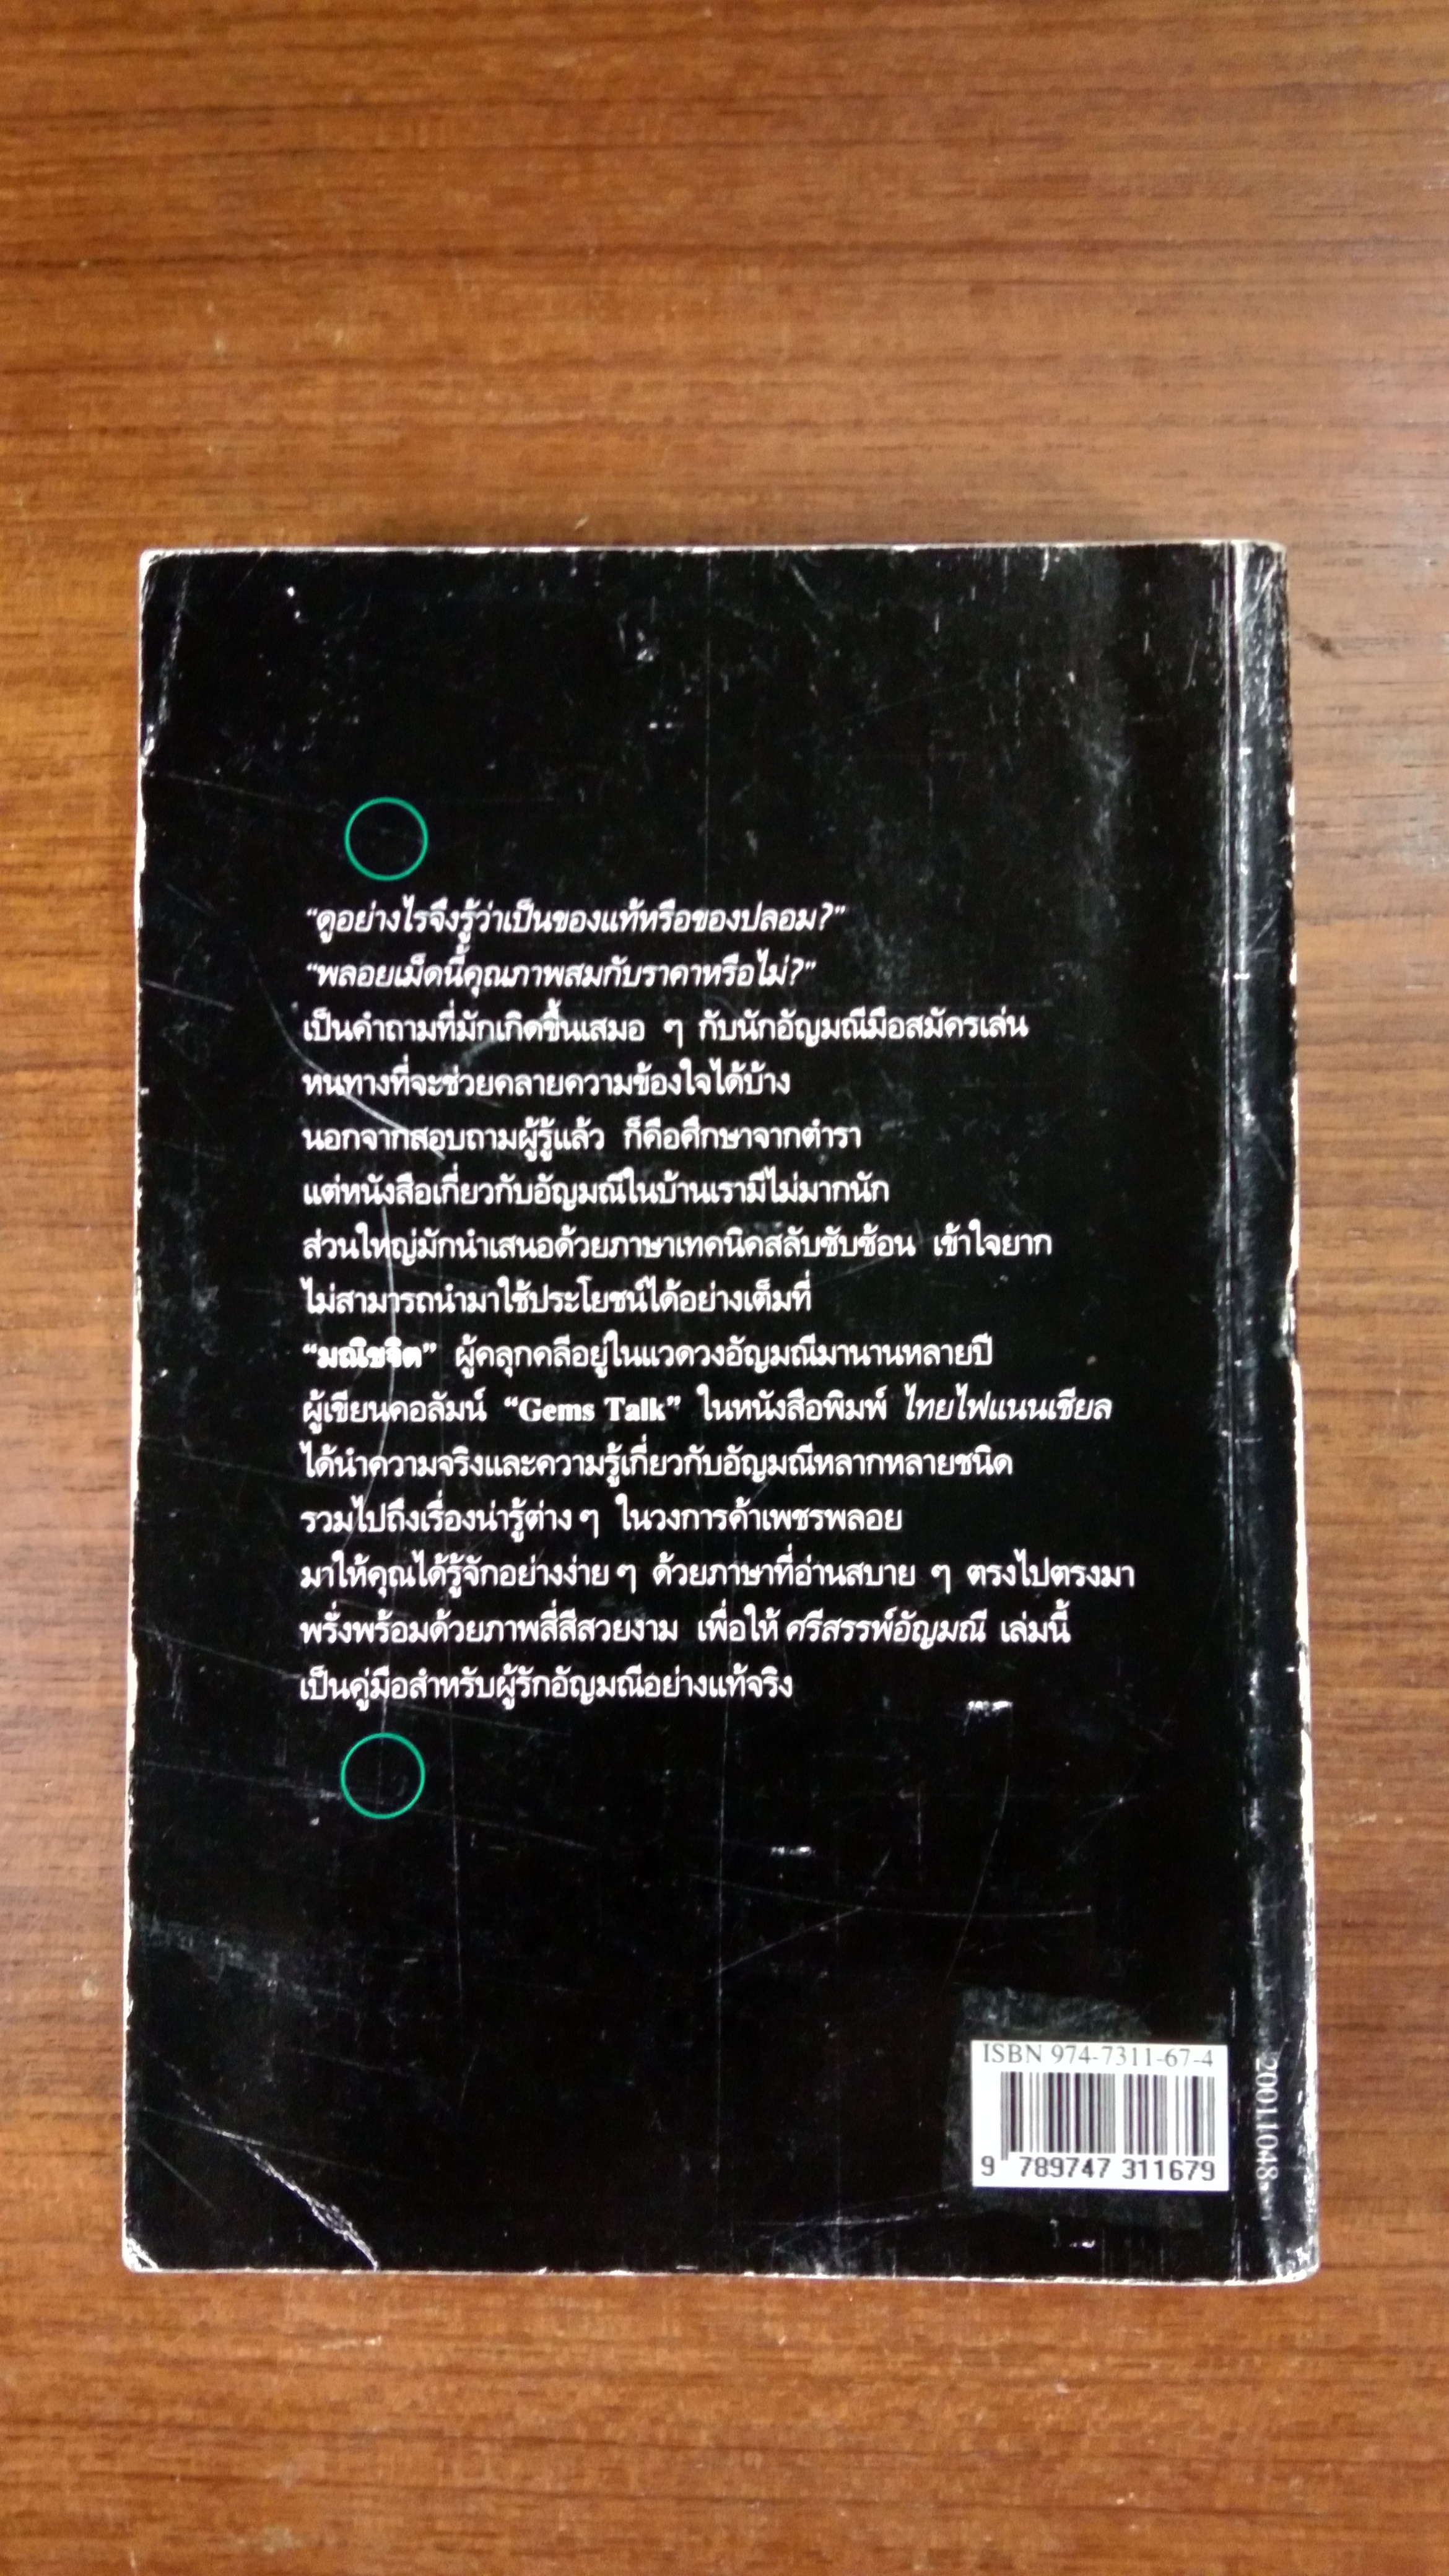 “ดูอย่างไรจึงรู้ว่าเป็นของแท้หรือของปลอม?”
“พลอยเม็ดนี้คุณภาพสมกับราคาหรือไม่?”
เป็นคำถามที่มักเกิดขึ้นเสมอ ๆ กับนักอัญมณีมือสมัครเล่น
หนทางที่จะช่วยคลายความข้องใจได้บ้าง
นอกจากสอบถามผู้รู้แล้ว ก็คือศึกษาจากตำรา
แต่หนังสือเกี่ยวกับอัญมณีในบ้านเรามีไม่มากนัก
ส่วนใหญ่มักนำเสนอด้วยภาษาเทคนิคสลับซับซ้อน เข้าใจยาก
ไม่สามารถนำมาใช้ประโยชน์ได้อย่างเต็มที่
“มณิขจิต” ผู้คลุกคลีอยู่ในแวดวงอัญมณีมานานหลายปี
ผู้เขียนคอลัมน์ “Gems Talk” ในหนังสือพิมพ์ ไทยไฟแนนเชียล
ได้นำความจริงและความรู้เกี่ยวกับอัญมณีหลากหลายชนิด
รวมไปถึงเรื่องน่ารู้ต่าง ๆ ในวงการค้าเพชรพลอย
มาให้คุณได้รู้จักอย่างง่าย ๆ ด้วยภาษาที่อ่านสบาย ๆ ตรงไปตรงมา
พรั่งพร้อมด้วยภาพสี่สีสวยงาม เพื่อให้ ศรีสรรพ์อัญมณี เล่มนี้
เป็นคู่มือสำหรับผู้รักอัญมณีอย่างแท้จริง
ISBN 974-7311-67-4
9 789747 311679
20011048